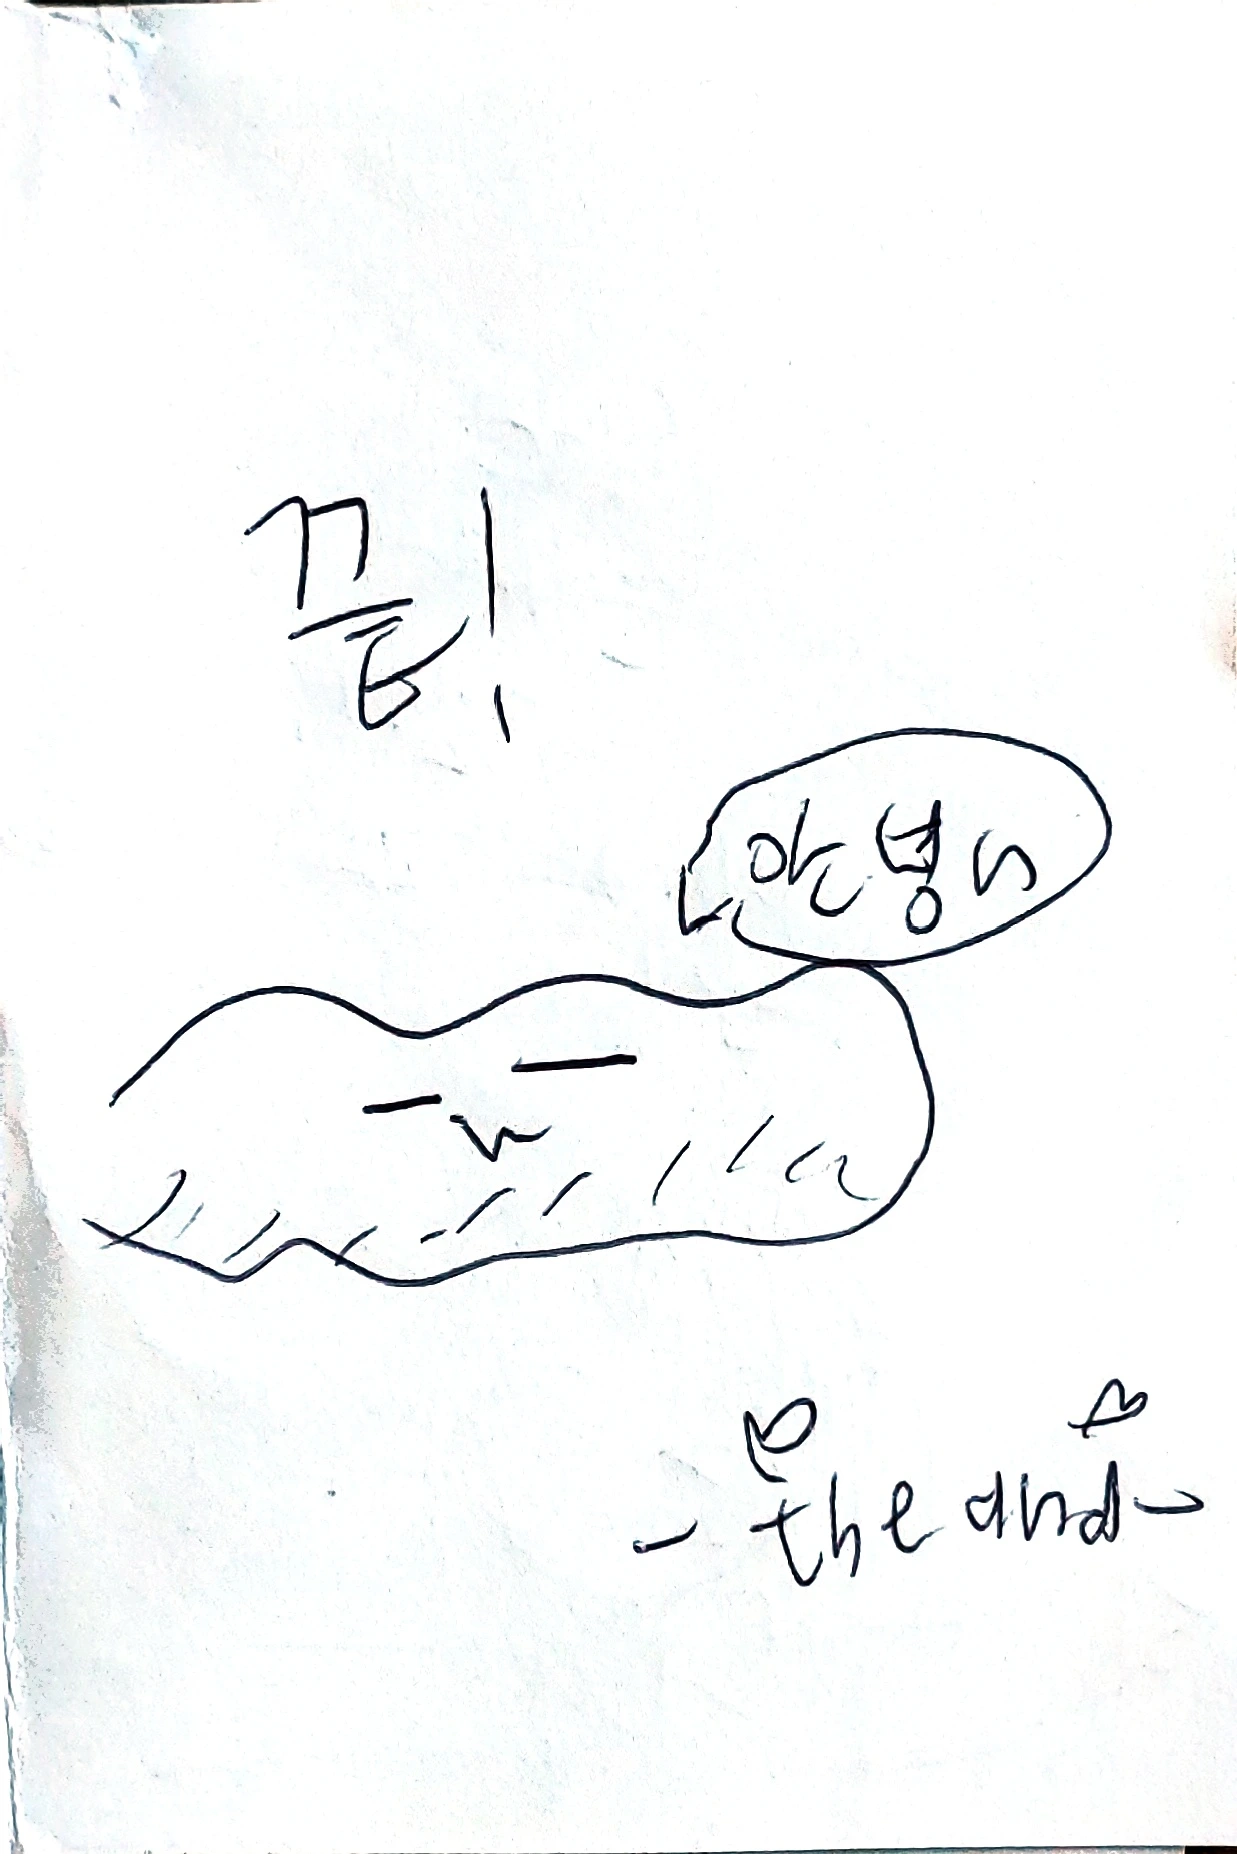 끝!
안녕
- the and -